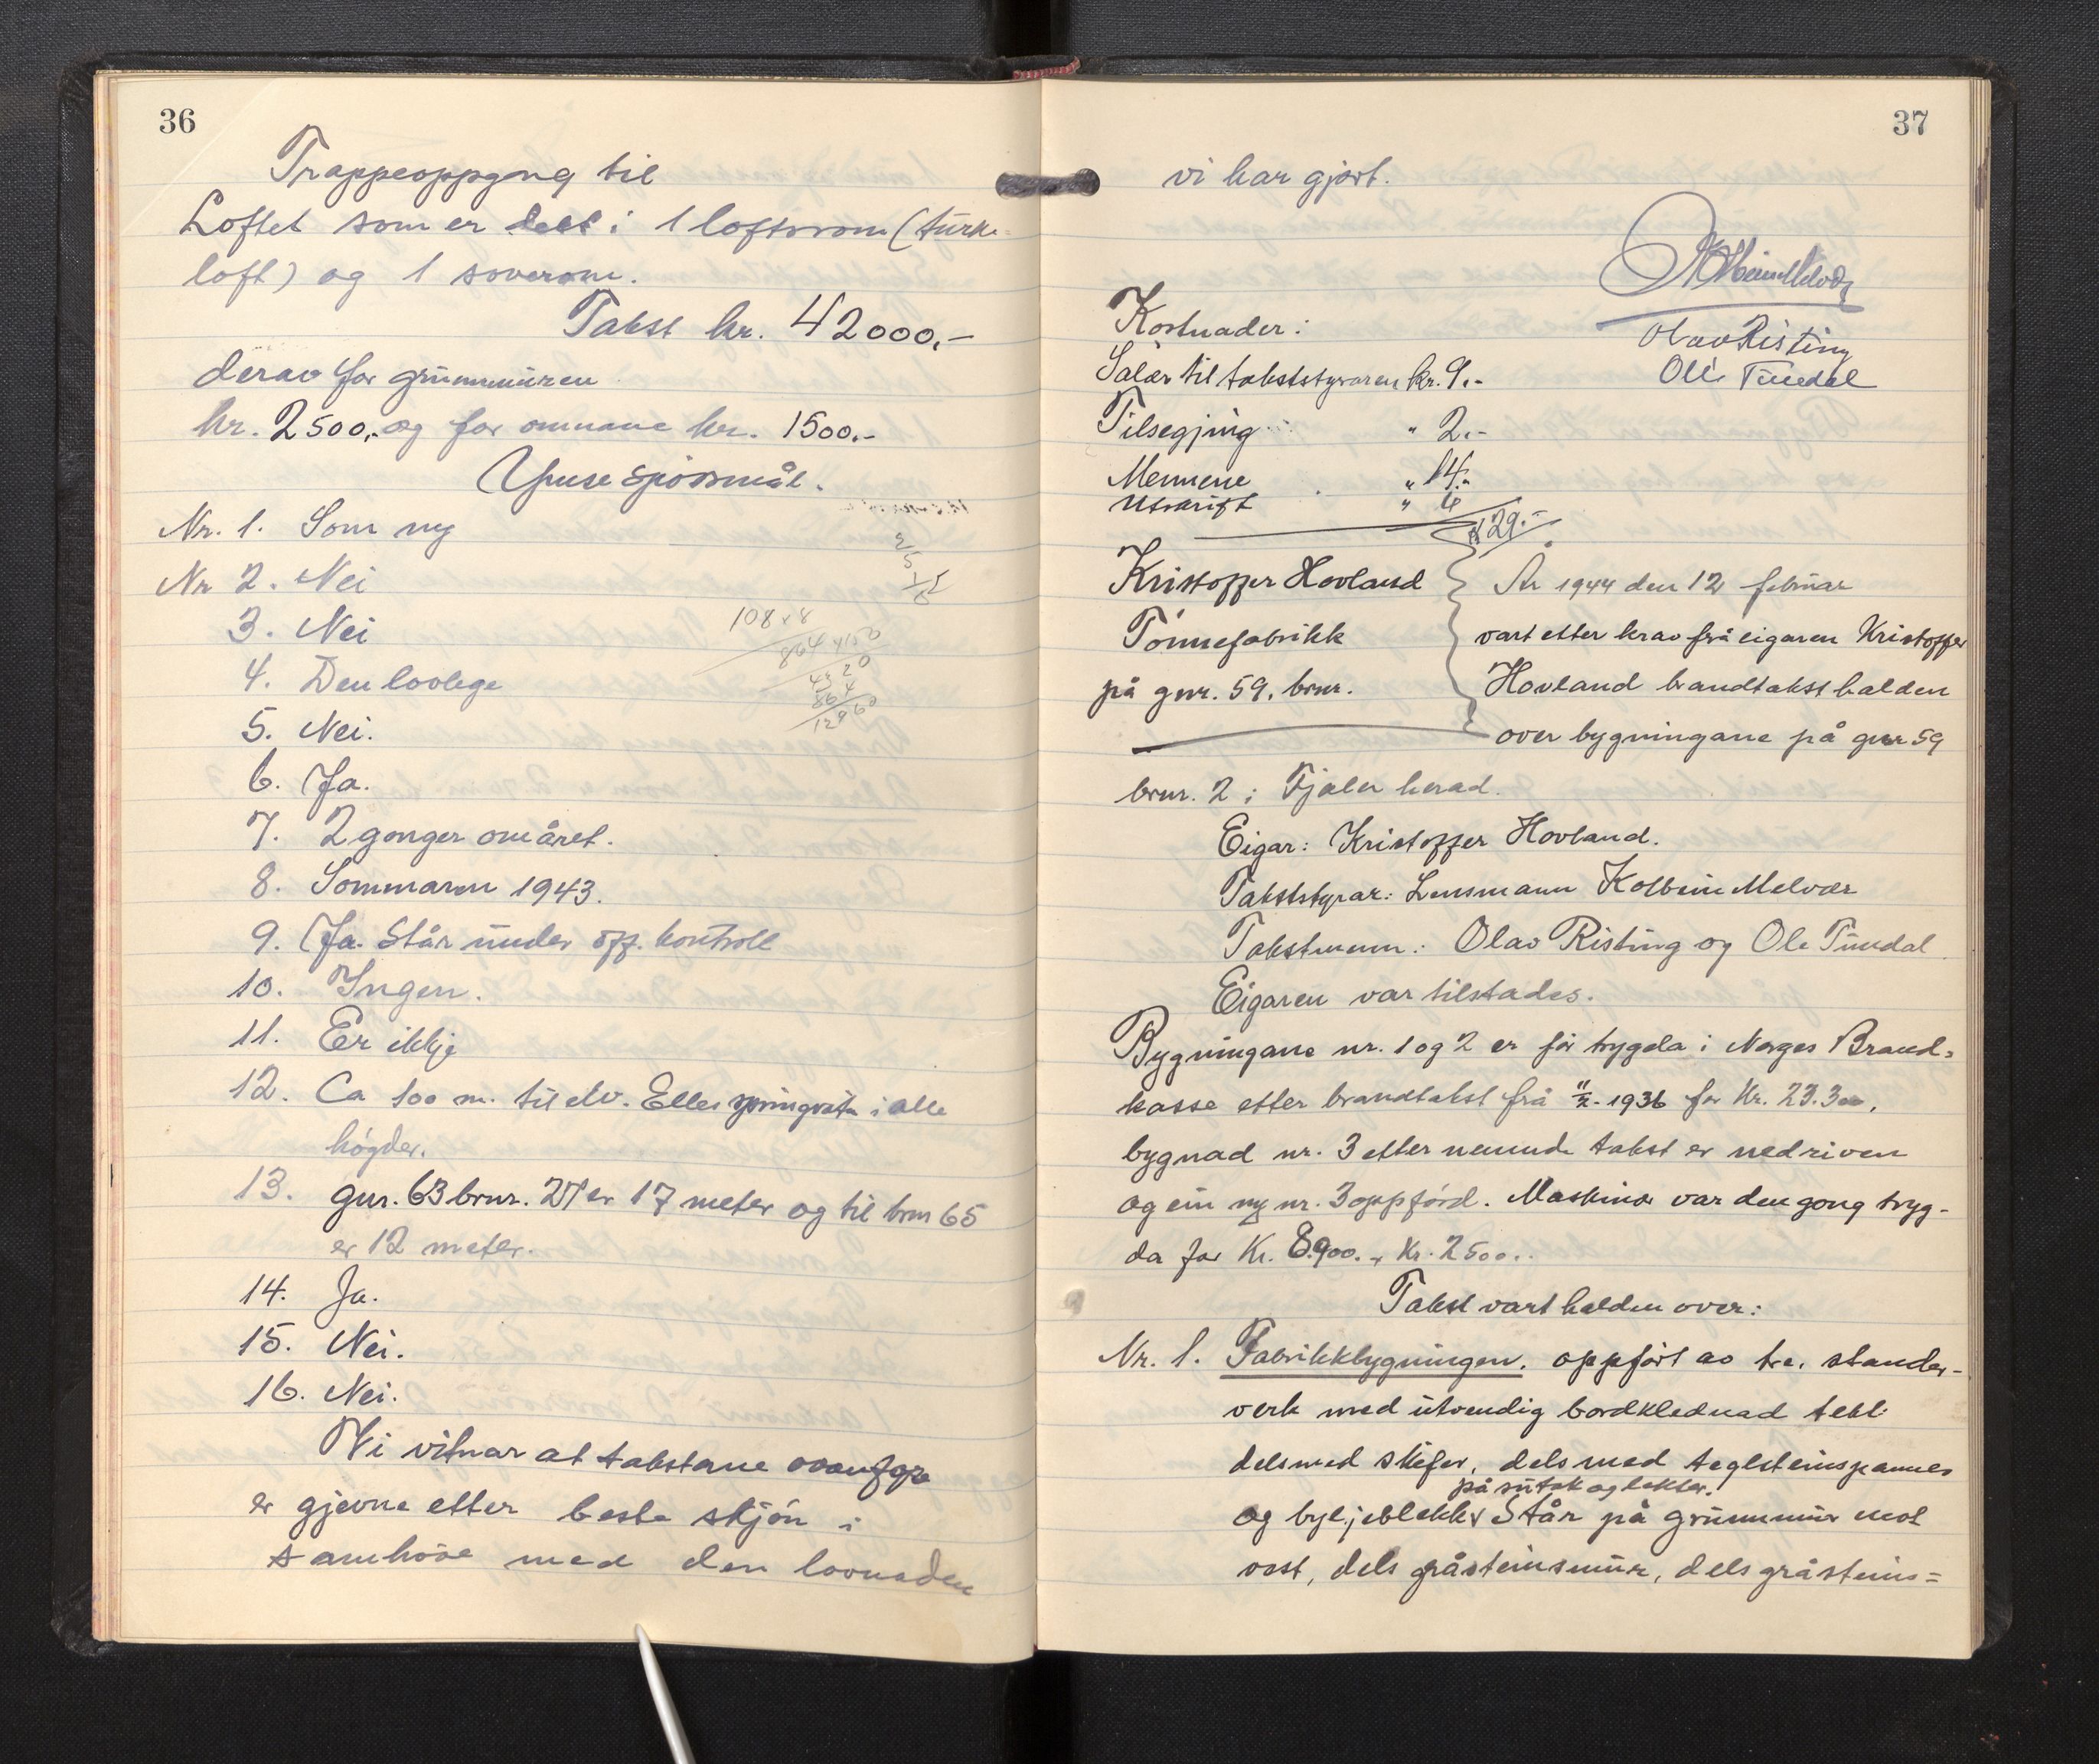 36
Trappeoppgang til
Loftet som er delt i 1 loftsrom (turke-
loft) og 1 soverom.
Takst kr. 42000,-
derav for grunnmuren
kr. 2500,- og for omnane kr. 1500.-
Ymse spörsmål.
Nr. 1. Som ny
Nr 2. Nei
3. Nei
108 x 8
864 x 150
4320
864
12960
4. Den lovlege
5. Nei.
6. Ja.
7. 2 gonger om året.
8. Sommaren 1943.
9. Ja. Står under off. kontroll
10. Ingen.
11. Er ikkje
12. Ca 100 m. til elv. Elles springvatn i alle
högder.
13. gnr. 63 brnr. 27 er 17 meter og til brnr 65
er 12 meter.
14. Ja.
15. Nei.
16. Nei.
Vi vitnar at takstane ovanfore
er gjevne etter beste skjön i
samhöve med den lovnaden
37
vi har gjort.
Kolbein Melvær
Olav Risting
Ole Tundal
Kostnader:
Salær til takststyraren kr. 9.-
Tilsegjing " 2.-
Mennene " 14.-
Utskrift " 4
kr 29.-
Kristoffer Hovland
Tönnefabrikk
på gnr. 59, brnr.
År 1944 den 12 februar
vart etter krav frå eigaren Kristoffer
Hovland brandtakst halden
over bygningane på gnr 59
brnr. 2 i Fjaler herad.
Eigar: Kristoffer Hovland.
Takststyrar: Lensmann Kolbein Melvær
Takstmenn: Olav Risting og Ole Tundal
Eigaren var tilstades.
Bygningane nr. 1 og 2 er för trygda i Norges Brand-
kasse etter brandtakst frå 1936 for Kr. 23.300,
bygnad nr. 3 etter nemnde takst er nedriven
og ein ny nr. 3 oppförd. Maskiner var den gong tryg-
da for Kr. 8900. + Kr. 2500..
Takst vart halden over:
Nr. 1. Fabrikkbygningen, oppfört av tre, stander-
verk med utvendig bordklednad tekt
dels med skifer, dels med teglsteinspanner
på sutak og lekter.
og bylgjeblekk. Står på grunnmur mot
vest, dels gråsteinsmur, dels gråsteins=